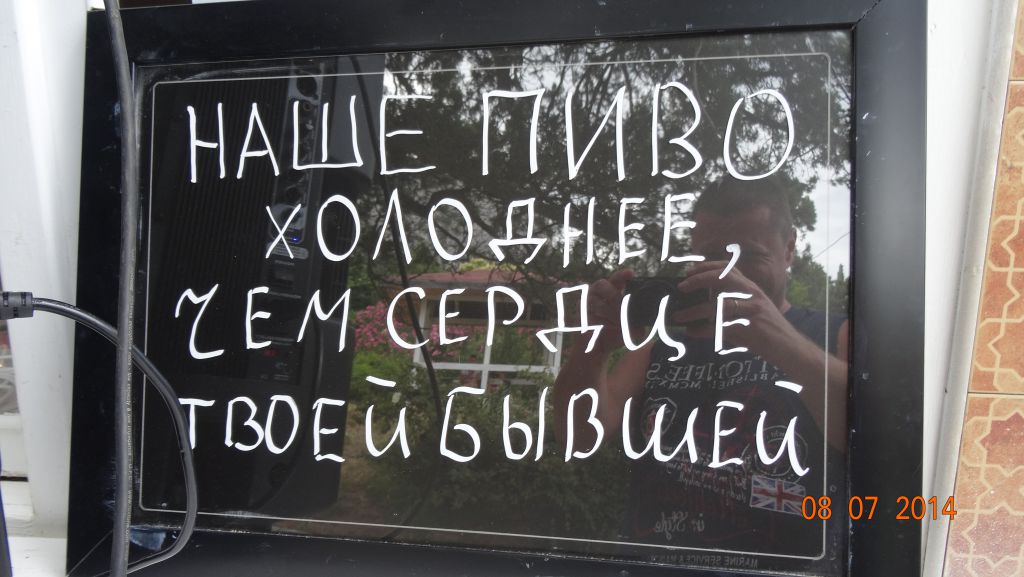 НАШЕ ПИВО
ХОЛОДНЕЕ,
ЧЕМ СЕРДЦЕ
ТВОЕЙ БЫВШЕЙ
08 07 2014